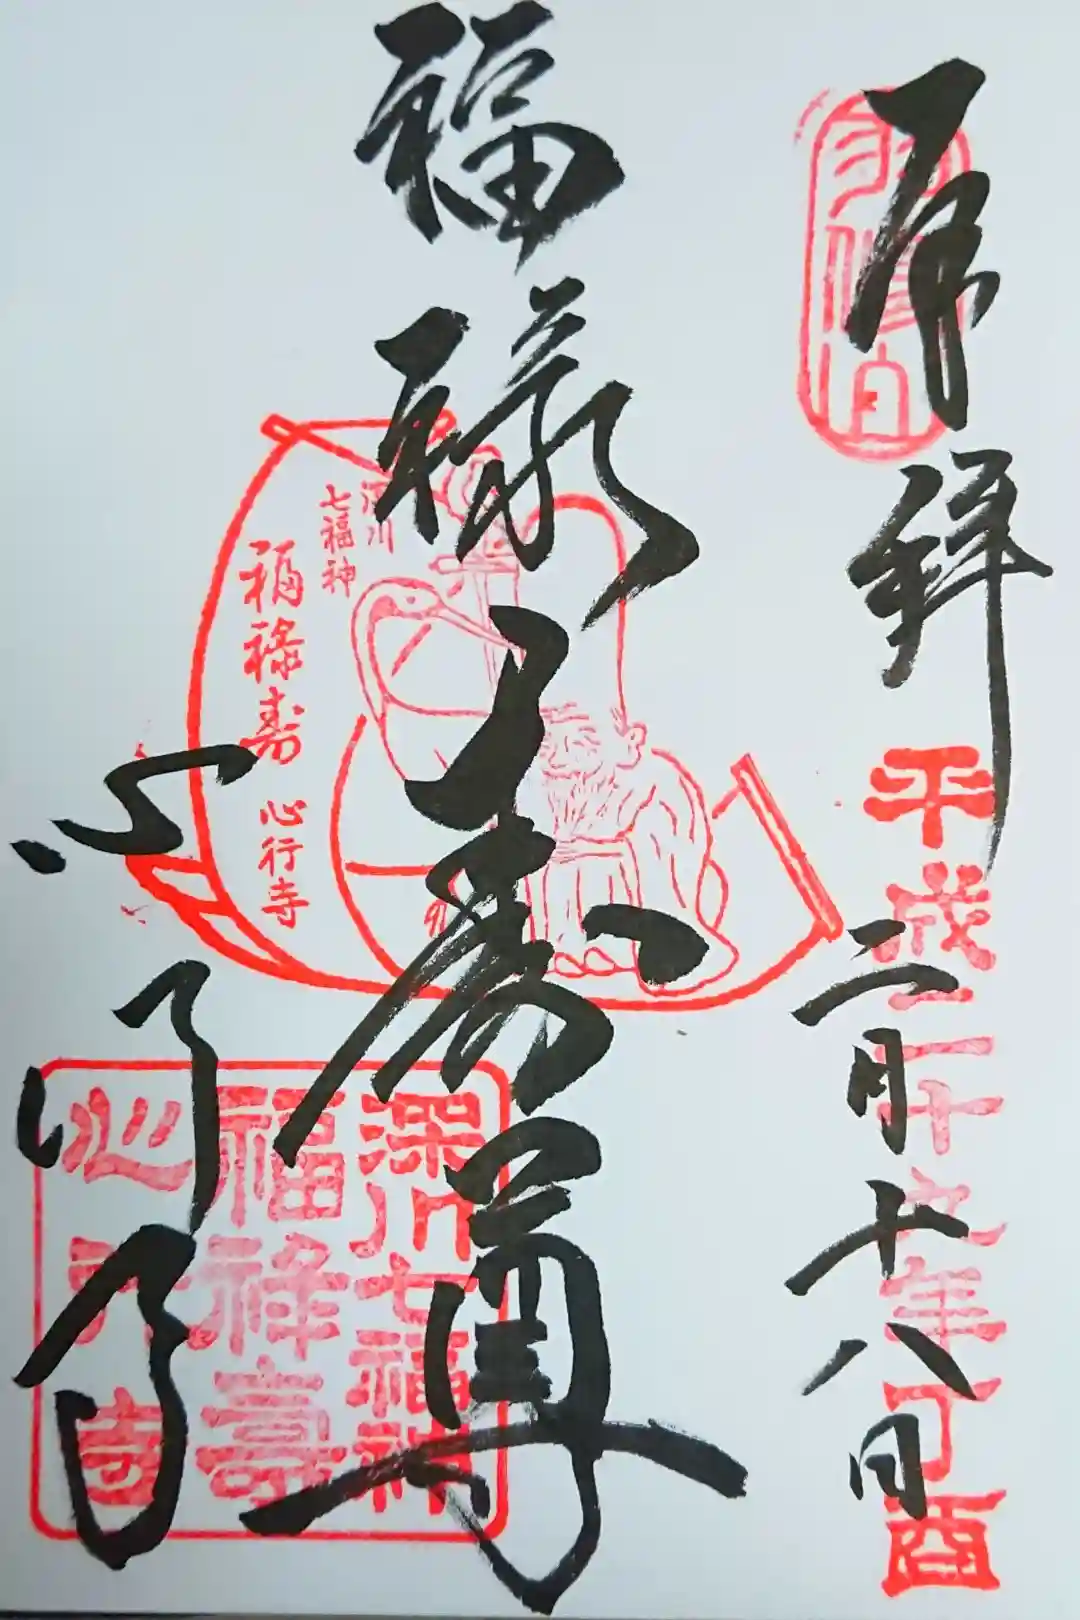 奉拝
平成二十九年丁酉
二月十八日
福禄寿尊
心行寺
深川
七福神
福禄寿 心行寺
深川七福神
福禄寿
心行寺